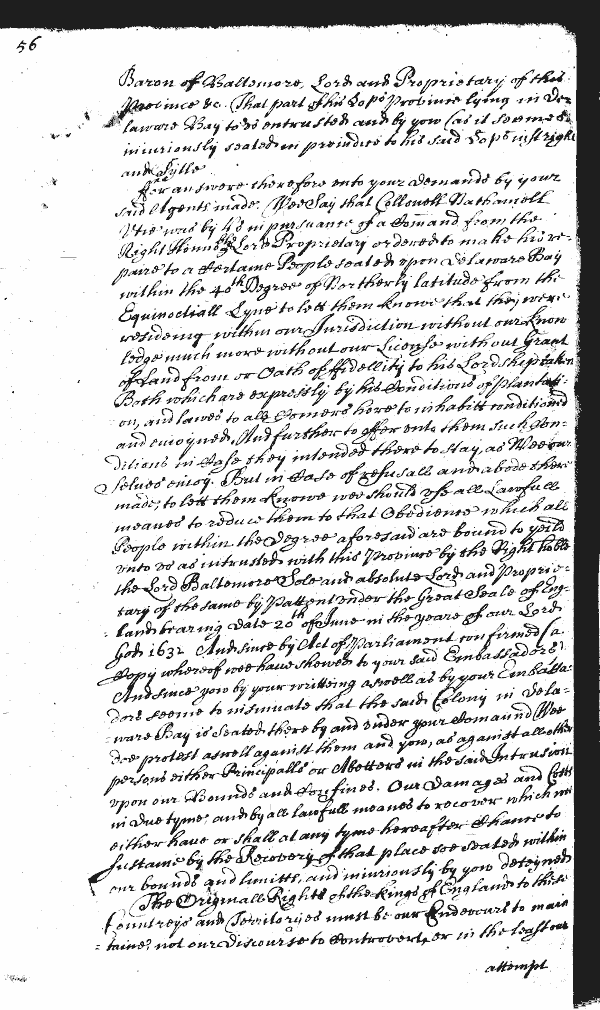 56
Baron of Baltemore, Lord and Proprietary of this
Province &c. (That part of his Lops Province lying in De-
laware Bay to us entrusted and by yow (as it seemes)
iniuriously seated in preiudice to his said Lops iust right
and Tytle
For answere therefore vnto your demands by your
said Agents made. Wee Say that Collonell Nathaniell
Vtie was by us in pursuance of a Comand from the
Right Honnoble Lord Proprietary ordered to make his re-
paire to a Certaine People seated vpon Delaware Bay
within the 40th Degree of Northerly latitude from the
Equinoctiall Lyne to lett them knowe that they were
residing within our Jurisdiction without our know
ledge much more without our License without Grant
of Land from or Oath of ffidellity to his Lordship taken
Both which are expressly by his Conditions of Plantati-
on, and lawes to all Comers here to inhabitt conditioned
and enioyned, And further to offer vnto them such Con-
ditions in Case they intended there to stay, as Wee our
Selues enioy. But in Case of refusall and abode there
made, to lett them knowe wee should vse all Lawfull
meanes to reduce them to that Obedience which all
People within the Degree aforesaid are bound to yeild
vnto vs as intrusted with this Province by the Right hoble
the Lord Baltemore Sole and absolute Lord and Proprie-
tary of the same by Pattent vnder the Great Seale of Eng-
land bearing date 20th of June in the yeare of our Lord
God 1632 And since by Act of Parliament confirmed (a
Copy whereof wee haue shewed to your said Embassadors)
And since yow by your writteing aswell as by your Embassa-
dors seeme to insinuate that the said Colony in Dela-
ware Bay is seated there by and vnder your Comaund (Wee
doe protest aswell against them and yow, as against all other
persons either Principalls or Abettors in the said Intrusion
vpon our Bounds and Confines. Our Damages and Costs
in due tyme, and by all lawfull meanes to recover which we
either haue or shall at any tyme hereafter chance to
Sustaine by the Recovery of that place soe seated within
our bounds and limitts, and iniuriously by yow deteyned
The Originall Rights of the Kings of England to these
Countreys and Territoryes must be our Endevours to main
taine, not our discourse to Controvert, or in the least our
attempt